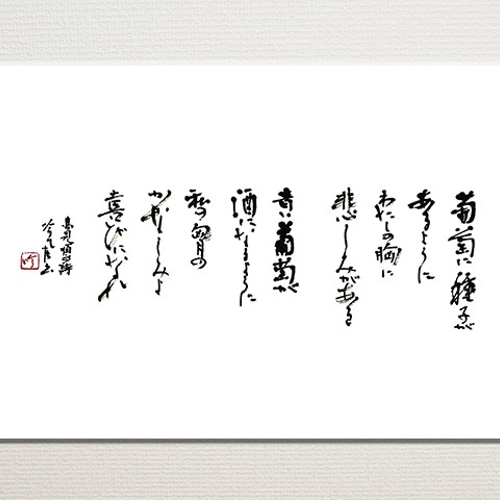 葡萄に種子が
あるように
わたしの胸に
悲しみがある
青い葡萄が
酒になるように
私の胸の
かなしみよ
喜びになれ
高見順詩